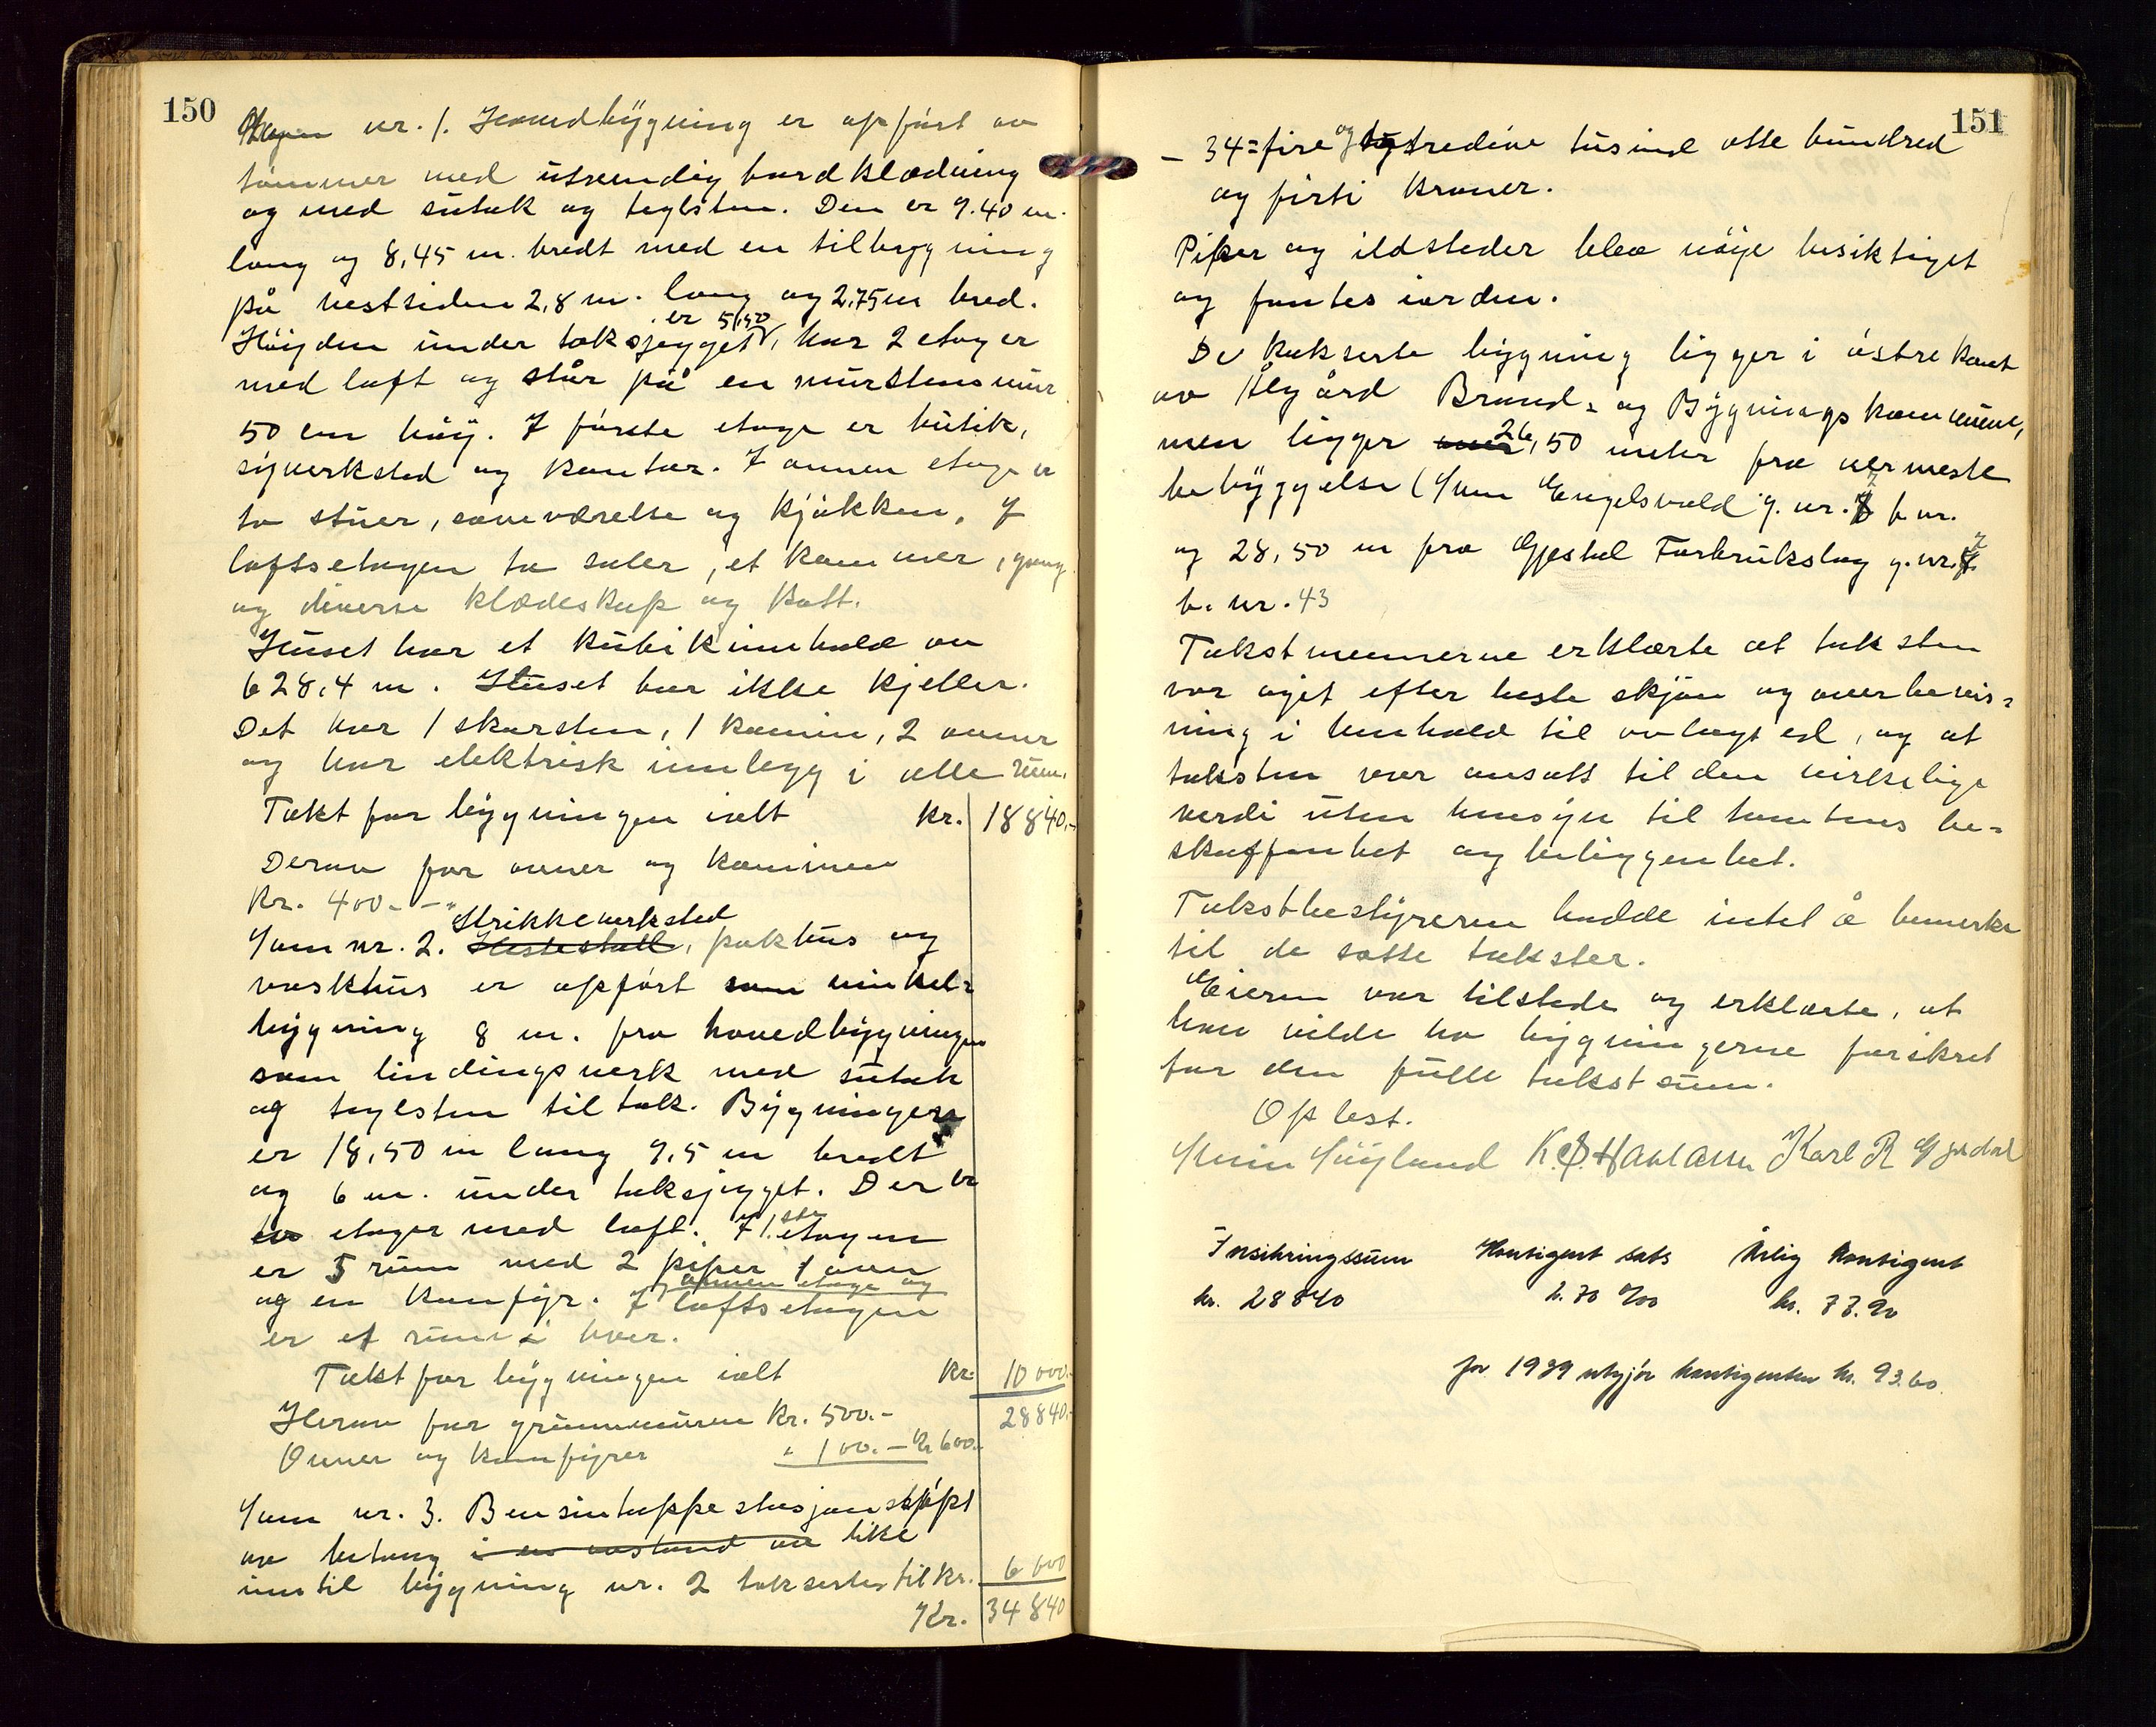 150
nr. 1. Hovedbygning er opført av
tømmer med utvendig bordklædning
og med sutak og teglsten. Den er 9.40 m.
lang og 8,45 m. bredt med en tilbygning
på vestsiden 2,8 m. lang og 2,75 m bred.
er 5,40
Høiden under taksjegget, har 2 etager
med loft og står på en murstensmur
50 cm høij. I første etage er butik,
syverksted og kontor. I annen etage er
to stuer, soveværelse og kjøkken, I
loftsetagen to saler, et kammer, gang
og diverse klædeskap og kott.
Huset har et kubikinnhold av
628,4 m. Huset har ikke kjeller.
Det har 1 skorsten, 1 kamin, 2 ovner
og har elektrisk innlegg i alle rum.
Takt for bygningen ialt kr. 18840.-
Derav for ovner og kaminen
Kr. 400.- -"
Strikkeverksted
nr. 2. Hestestall, pakhus og
vaskhus er opført som vinkel-
bygning 8 m. fra hovedbygningen
som bindingsverk med sutak
og teglsten til tak. Bygningen
er 18,50 m lang 9,5 m bredt
og 6 m. under taksjegget. Der er
to etager med loft. I 1.ste etagen
er 5 rum med 2 piper 1 oven
og en komfyr. I annen etage og
loftsetagen
er et rum i hver.
Takt for bygningen ialt kr. 10 000.-
Herav for grunnmuren Kr. 500.- 28840.-
Ovner og komfyrer " 100.- Kr 600.-
nr. 3. Bensintappestasjon støpt
av betong i en avstand av like
inntil bygning nr. 2 takseres til kr. 6 000
Kr. 34 840
151
- 34=fire og tredive tusind otte hundred
og firti kroner.
Piper og ildsteder blev nøye besiktiget
og fantes iorden.
De takserte bygning ligger i østre kant
av Ålgård Brand- og Bygningskommune,
men ligger 26,50 meter fra nermeste
bebyggelse ( Engelsvold g. nr. 7 b nr.
og 28,50 m fra Gjestal Forbrukslag g. nr. 7
b. nr. 43
Takstmennerne erklærte at taksten
var aget efter beste skjøn og overbevis-
ning i henhold til avlagt ed, og at
taksten var ansatt til den virkelige
verdi uten hensyn til tomtens be-
skaffenhet og beliggenhet.
Takstbestyreren hadde intet å bemerke
til de satte takster.
Eieren var tilstede og erklærte, at
han vilde ha bygningerne forsikret
for den fulle takstsum.
Oplest.
Karl R Gjesdal
Forsikringssum Kontigent sats Årlig kontigent
kr. 28840 2.70 ‰ kr. 77.90
for 1939 utgjør kontigenten kr. 93.60